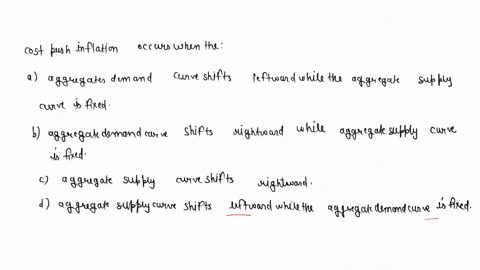 cost push inflation occurs when the:
a) aggregates demand curve shifts leftward while the aggregate supply
curve is fixed.
b) aggregate demand curve shifts rightward while aggregate supply curve
is fixed.
c) aggregate supply curve shifts rightward.
d) aggregate supply curve shifts leftward while the aggregate demand curve is fixed.